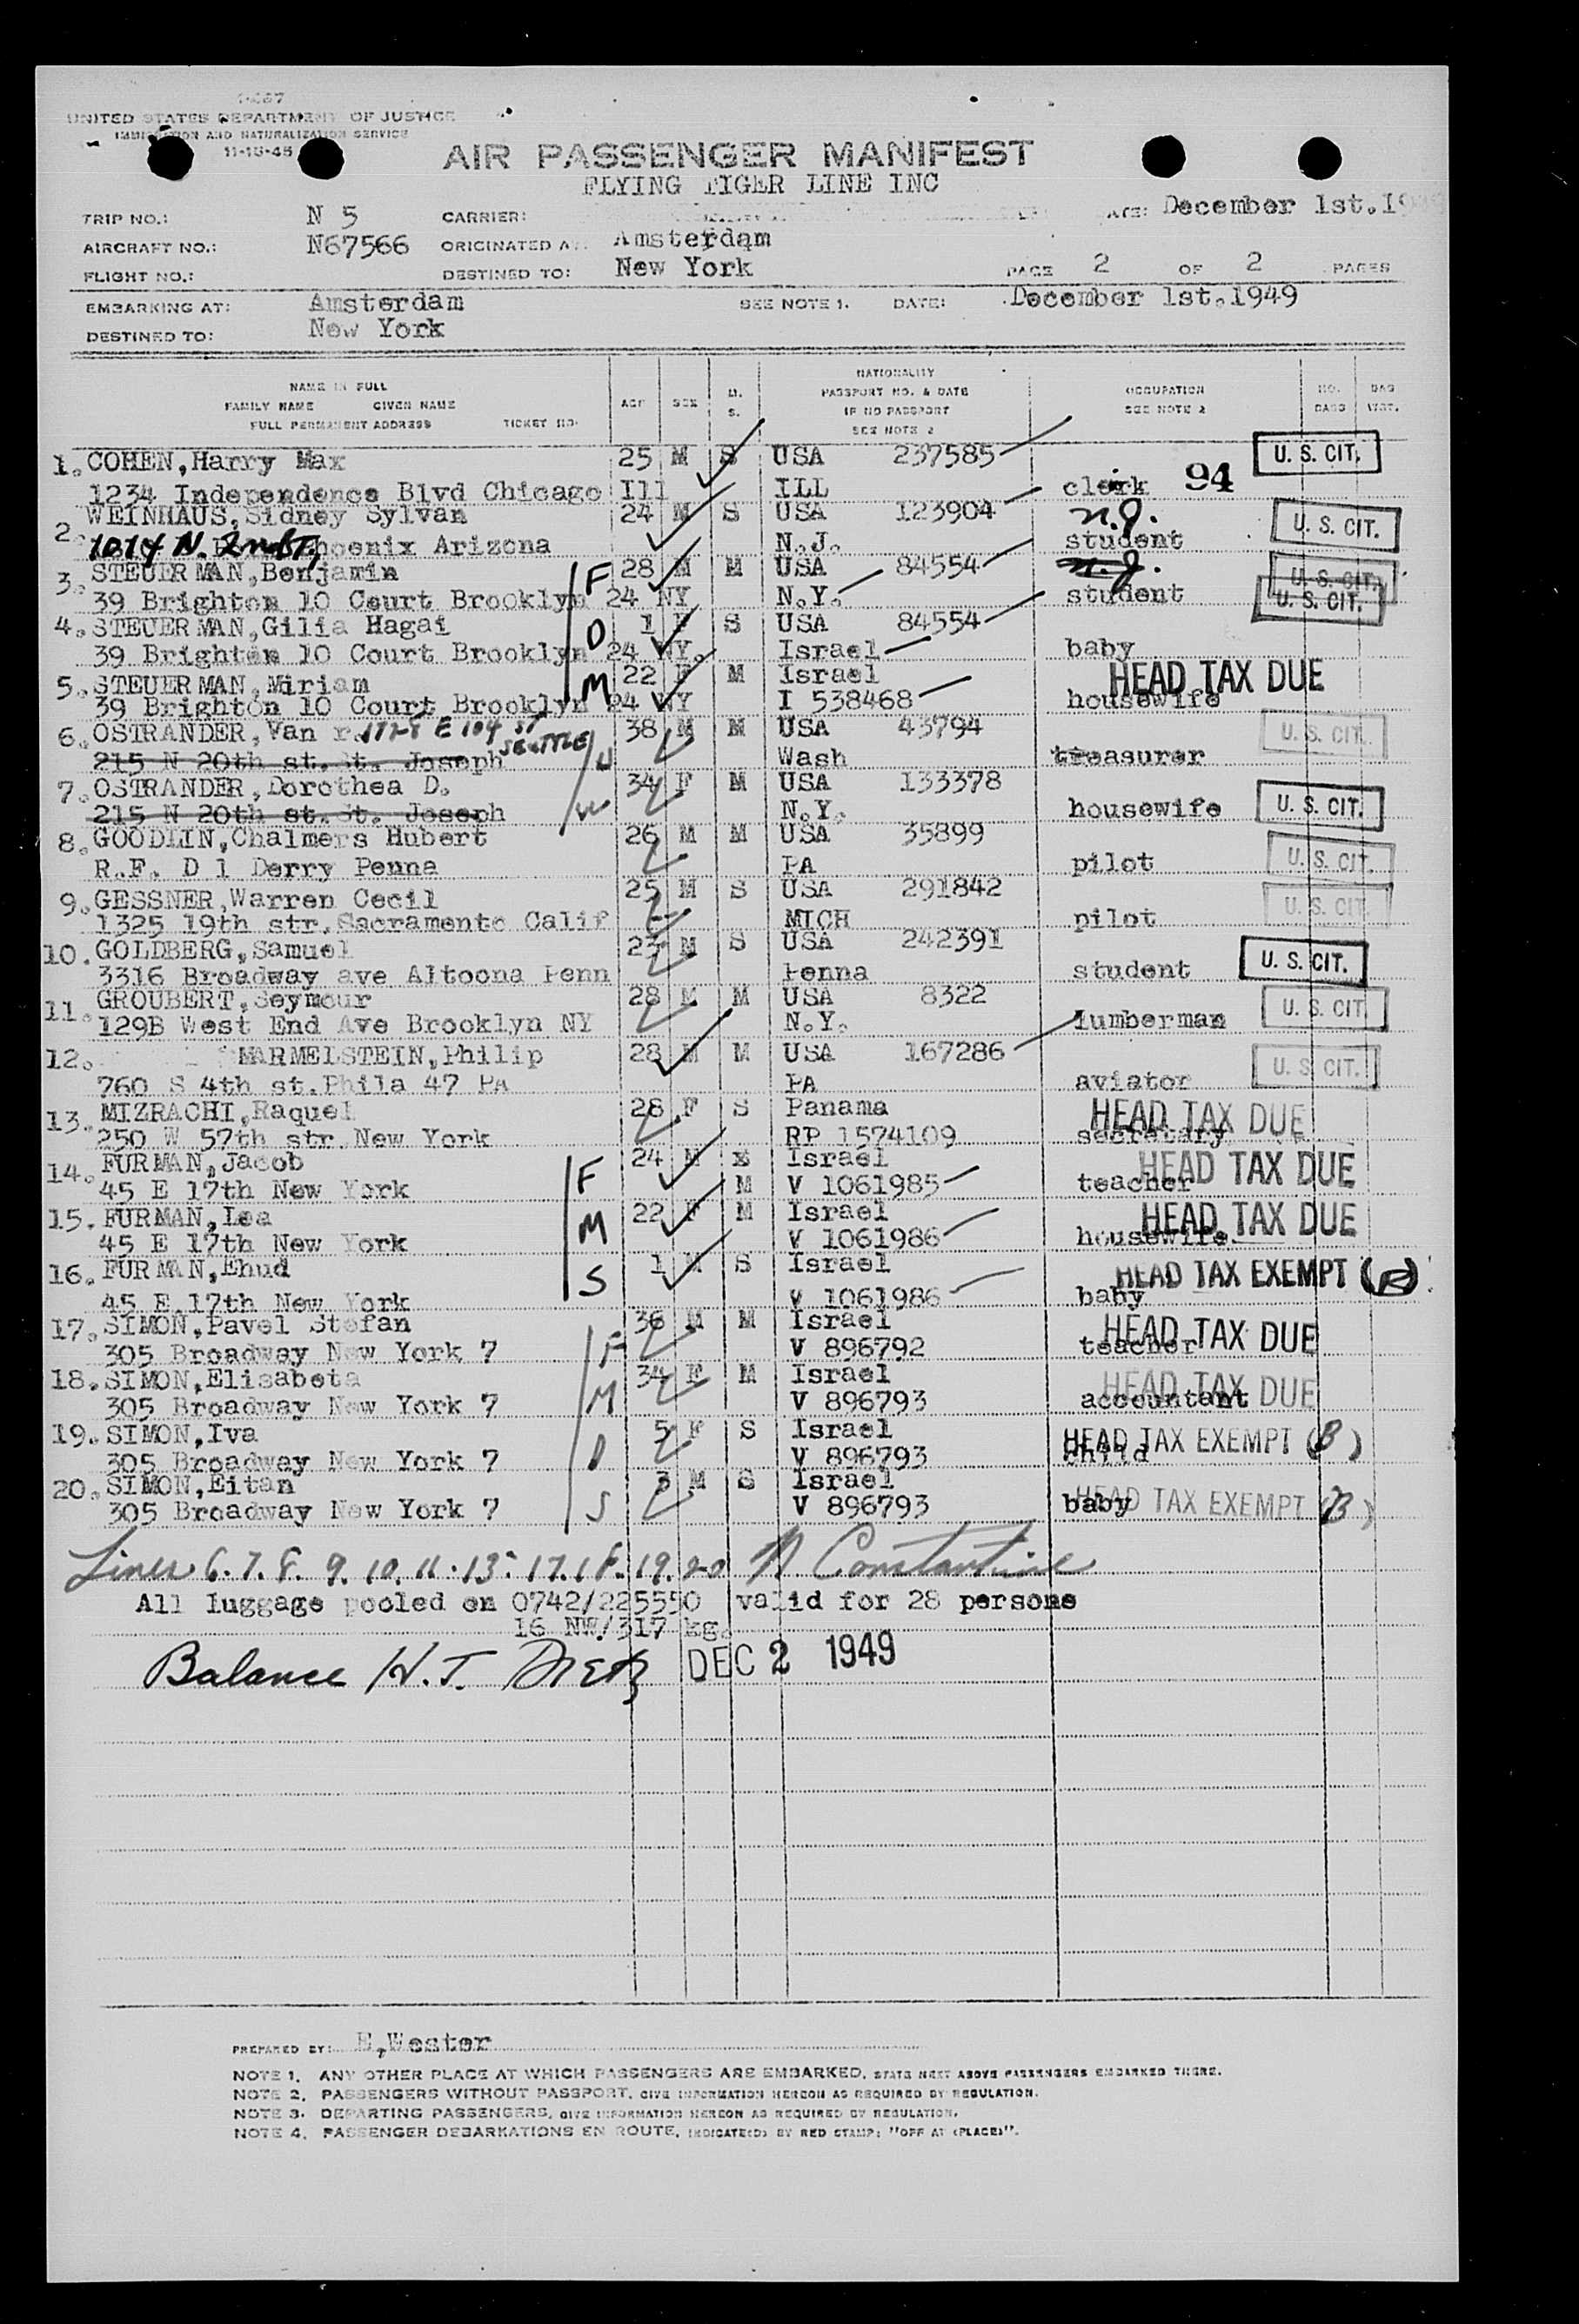 I-467
UNITED STATES DEPARTMENT OF JUSTICE
IMMIGRATION AND NATURALIZATION SERVICE
11-15-45
AIR PASSENGER MANIFEST
FLYING TIGER LINE INC
TRIP NO.: N 5 CARRIER: DATE: December 1st.19
AIRCRAFT NO.: N67566 ORIGINATED AT: Amsterdam
FLIGHT NO.: DESTINED TO: New York PAGE 2 OF 2 PAGES
EMBARKING AT: Amsterdam SEE NOTE 1. DATE: December 1st.1949
DESTINED TO: New York
NAME IN FULL
FAMILY NAME GIVEN NAME
FULL PERMANENT ADDRESS TICKET NO.
AGE SEX M. S.
NATIONALITY
PASSPORT NO. & DATE
IF NO PASSPORT
SEE NOTE 2
OCCUPATION
SEE NOTE 2
NO. BAGS BAG WGT.
1. COHEN,Harry Max 25 M S USA 237585 U. S. CIT.
1234 Independence Blvd Chicago Ill ILL clerk 94
WEINHAUS,Sidney Sylvan 24 M S USA 123904 N.J. U. S. CIT.
2. 1014 N. 2nd St, Phoenix Arizona N.J. student
3. STEUERMAN,Benjamin F 28 M M USA 84554 N.J. U. S. CIT.
39 Brighton 10 Court Brooklyn 24 NY N.Y. student U. S. CIT.
4. STEUERMAN,Gilia Hagai D 1 F S USA 84554
39 Brighton 10 Court Brooklyn 24 NY. Israel baby
5. STEUERMAN,Miriam M 22 F M Israel HEAD TAX DUE
39 Brighton 10 Court Brooklyn 24 NY I 538468 housewife
6. OSTRANDER,Van r. 1728 E 104 ST SEATTLE 38 M M USA 43794 U. S. CIT.
215 N 20th st.St. Joseph H Wash treasurer
7. OSTRANDER,Dorothea D. 34 F M USA 133378
215 N 20th st.St. Joseph W N.Y. housewife U. S. CIT.
8. GOODLIN,Chalmers Hubert 26 M M USA 35899
R.F. D 1 Derry Penna PA pilot U. S. CIT.
9. GESSNER,Warren Cecil 25 M S USA 291842
1325 19th str.Sacramento Calif MICH pilot U. S. CIT.
10. GOLDBERG,Samuel 23 M S USA 242391
3316 Broadway ave Altoona Penn Penna student U. S. CIT.
11. GROUBERT,Seymour 28 M M USA 8322
129B West End Ave Brooklyn NY N.Y. lumberman U. S. CIT.
12. MARMELSTEIN,Philip 28 M M USA 167286
760 S 4th st.Phila 47 PA PA aviator U. S. CIT.
13. MIZRACHI,Raquel 28 F S Panama HEAD TAX DUE
250 W 57th str.New York RP 1574109 secretary
14. FURMAN,Jacob F 24 M x Israel HEAD TAX DUE
45 E 17th New York M V 1061985 teacher
15. FURMAN,Lea M 22 F M Israel HEAD TAX DUE
45 E 17th New York V 1061986 housewife
16. FURMAN,Ehud S 1 M S Israel HEAD TAX EXEMPT (B)
45 E 17th New York V 1061986 baby
17. SIMON,Pavel Stefan 36 M M Israel HEAD TAX DUE
305 Broadway New York 7 F V 896792 teacher
18. SIMON,Elisabeta 34 F M Israel HEAD TAX DUE
305 Broadway New York 7 M V 896793 accountant
19. SIMON,Iva 5 F S Israel HEAD TAX EXEMPT (B)
305 Broadway New York 7 D V 896793 child
20. SIMON,Eitan 3 M S Israel
305 Broadway New York 7 S V 896793 baby HEAD TAX EXEMPT (B)
Lines 6. 7. 8. 9. 10. 11. 13. 17. 18. 19. 20 N Constantine
All luggage pooled on 0742/225550 valid for 28 persons
16 NW/317 kg.
Balance H.T. DEC 2 1949
PREPARED BY: E,Wester
NOTE 1. ANY OTHER PLACE AT WHICH PASSENGERS ARE EMBARKED, STATE NEXT ABOVE PASSENGERS EMBARKED THERE.
NOTE 2. PASSENGERS WITHOUT PASSPORT, GIVE INFORMATION HEREON AS REQUIRED BY REGULATION.
NOTE 3. DEPARTING PASSENGERS, GIVE INFORMATION HEREON AS REQUIRED BY REGULATION.
NOTE 4. PASSENGER DEBARKATIONS EN ROUTE, INDICATE(D) BY RED STAMP: "OFF AT (PLACE)".